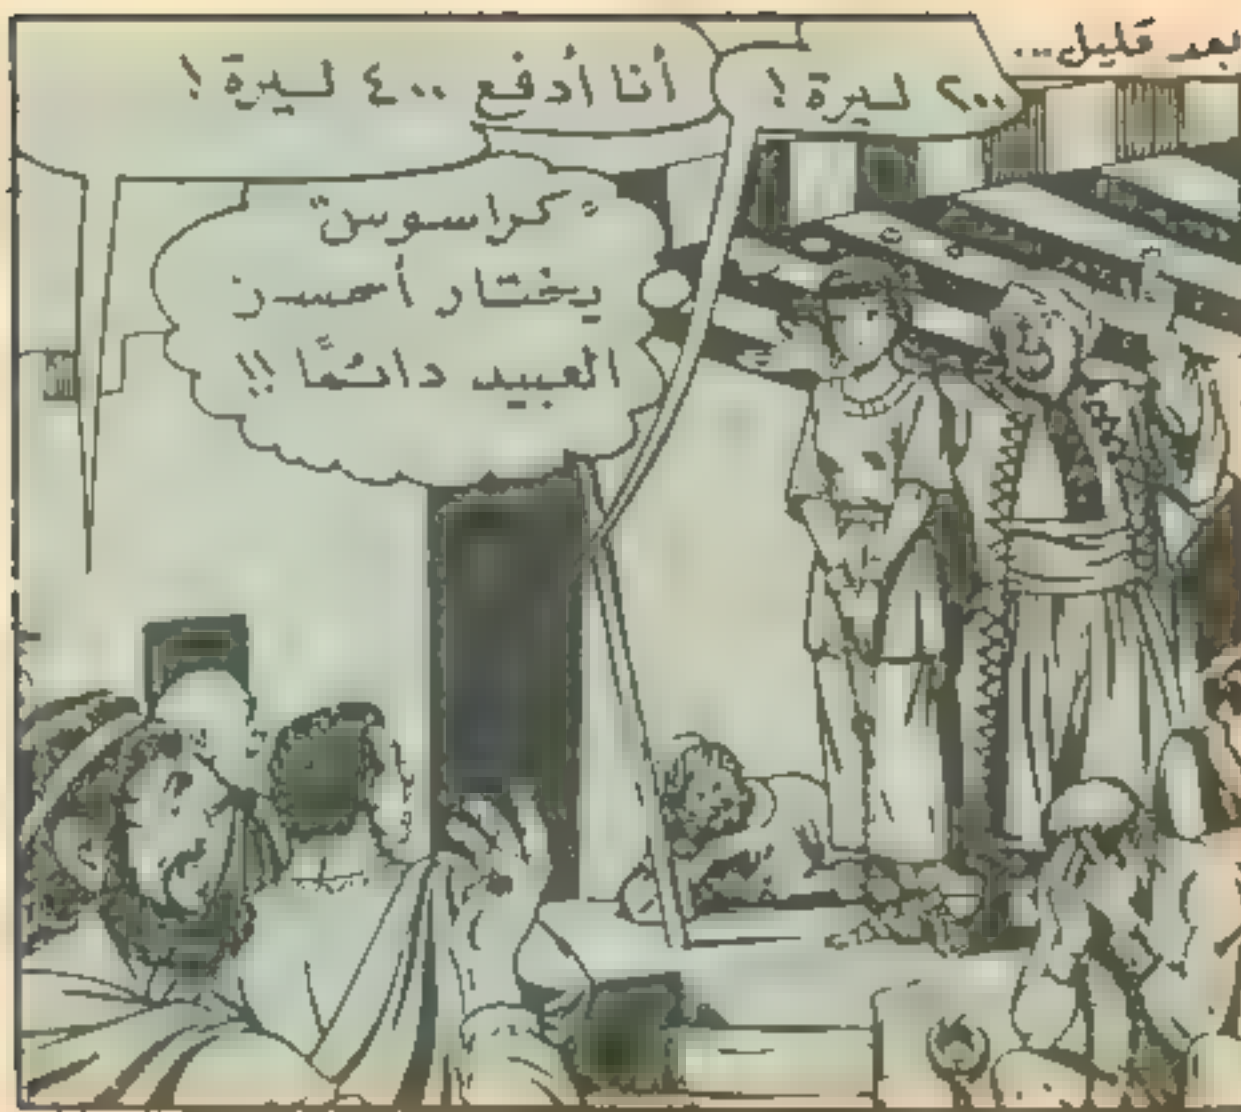 بعد قليل...
٢٠٠ ليرة !
أنا أدفع ٤٠٠ ليرة !
"كراسوس"
يختار أحسن
العبيد دائمًا !!